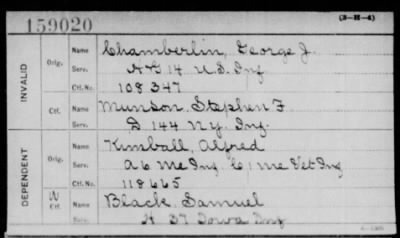 159020
(3-H-4)
INVALID
Orig.
Name Chamberlin, George J.
Serv. A & G 14 U.S. Inf
Ctf. No. 108347
Ctf.
Name Munson, Stephen F
Serv. D 144 N.Y. Inf.
DEPENDENT
Orig.
Name Kimball, Alfred
Serv. A 6 Me Inf. C 1 Me Vet Inf
Ctf. No. 118665
W
Ctf.
Name Black, Samuel
Serv. H 37 Iowa Inf